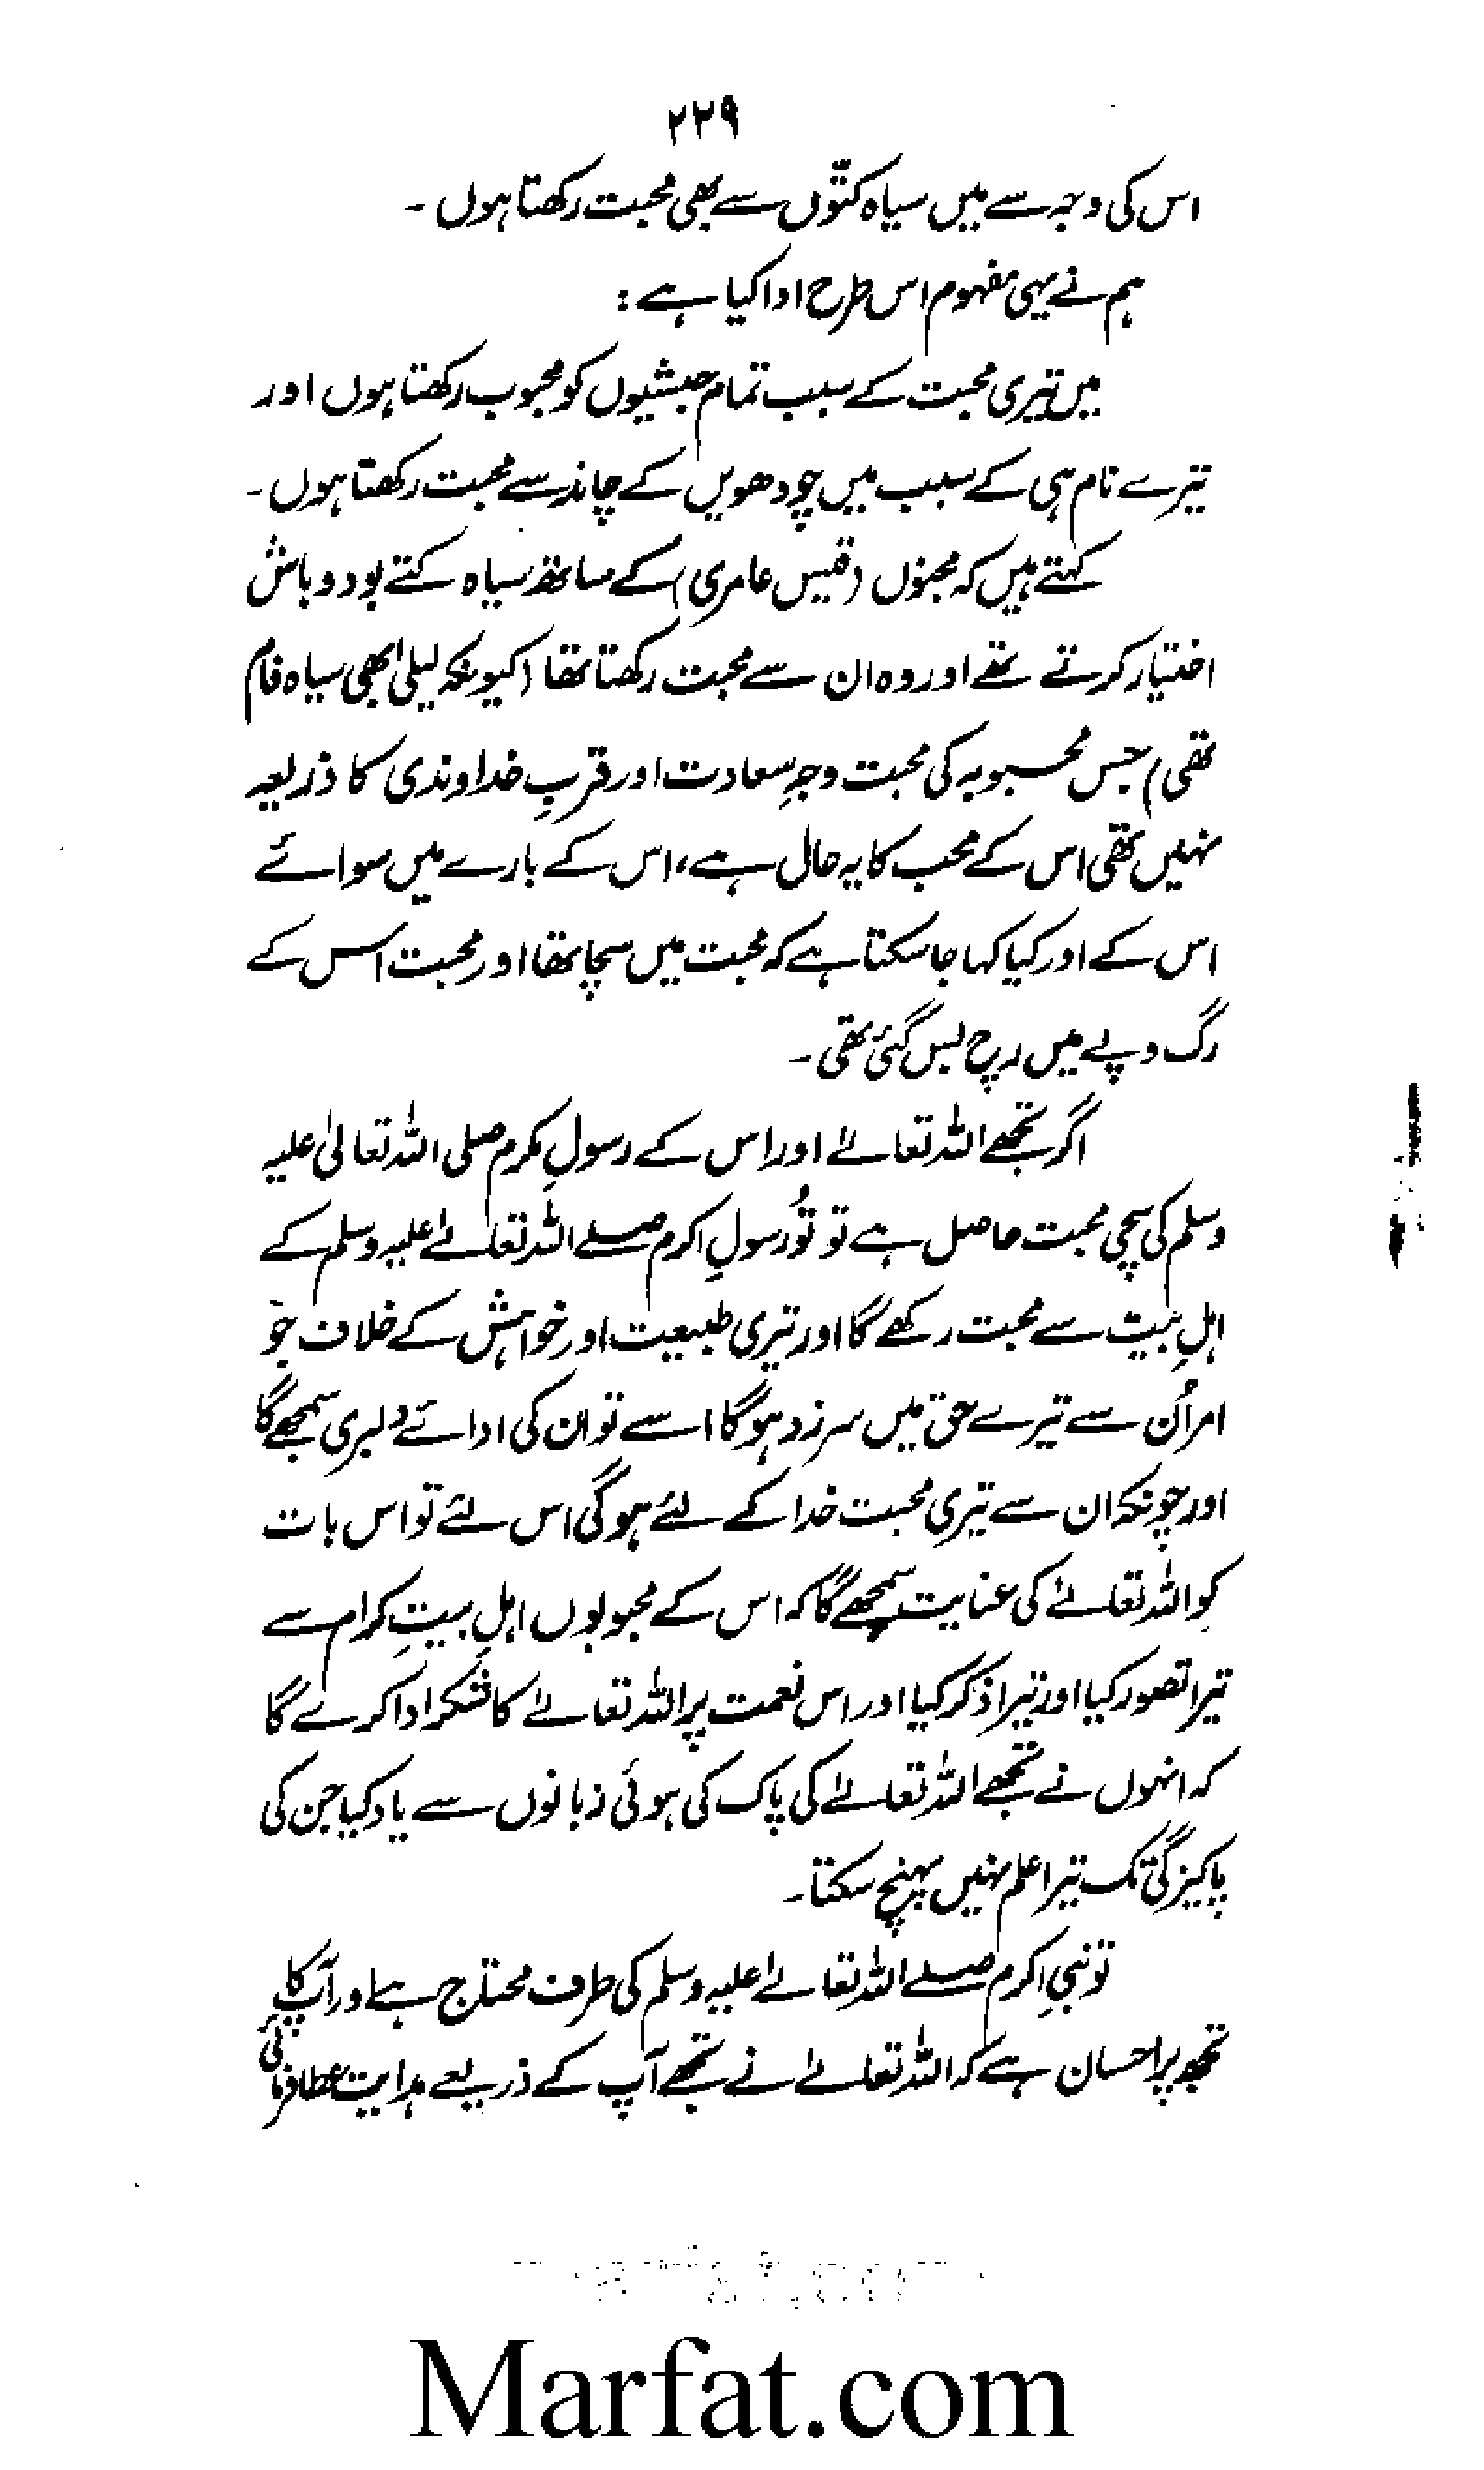 ۲۲۹
اس کی وجہ سے میں سیاہ کتّوں سے بھی محبت رکھتا ہوں ۔
ہم نے یہی مفہوم اس طرح ادا کیا ہے :
میں تیری محبت کے سبب تمام حبشیوں کو محبوب رکھتا ہوں اور
تیرے نام ہی کے سبب میں چودھویں کے چاند سے محبت رکھتا ہوں ۔
کہتے ہیں کہ مجنوں (قیس عامری) کے ساتھ سیاہ کتے بود و باش
اختیار کرتے تھے اور وہ ان سے محبت رکھتا تھا (کیونکہ لیلیٰ بھی سیاہ فام
تھی) جس محبوبہ کی محبت وجہِ سعادت اور قربِ خداوندی کا ذریعہ
نہیں تھی اس کے محب کا یہ حال ہے، اس کے بارے میں سوائے
اس کے اور کیا کہا جا سکتا ہے کہ محبت میں سچا تھا اور محبت اس کے
رگ و پے میں رچ بس گئی تھی ۔
اگر تجھے اللہ تعالےٰ اور اس کے رسولِ مکرم صلی اللہ تعالیٰ علیہ
وسلم کی سچی محبت حاصل ہے تو تُو رسولِ اکرم صلے اللہ تعالےٰ علیہ وسلم کے
اہلِ بیت سے محبت رکھے گا اور تیری طبیعت اور خواہش کے خلاف جو
امر اُن سے تیرے حق میں سرزد ہو گا اسے تو ان کی ادائے دلبری سمجھے گا
اور چونکہ ان سے تیری محبت خدا کے لئے ہو گی اس لئے تو اس بات
کو اللہ تعالےٰ کی عنایت سمجھے گا کہ اس کے محبوبوں اہلِ بیتِ کرام سے
تیرا تصور کیا اور تیرا ذکر کیا اور اس نعمت پر اللہ تعالےٰ کا شکر ادا کرے گا
کہ انہوں نے تجھے اللہ تعالےٰ کی پاک کی ہوئی زبانوں سے یاد کیا جن کی
پاکیزگی تک تیرا علم نہیں پہنچ سکتا ۔
تو نبیِ اکرم صلے اللہ تعالےٰ علیہ وسلم کی طرف محتاج ہے اور آپ کا
تجھ پر احسان ہے کہ اللہ تعالےٰ نے تجھے آپ کے ذریعے ہدایت عطا فرمائی
Marfat.com